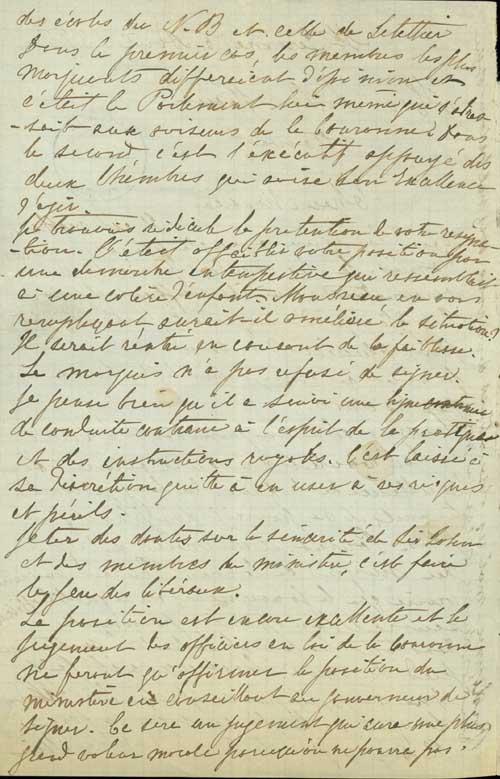 des écoles du N.B et celle de Letellier
Dans le premier cas, les membres les plus
marquants differeient d'opinion et
c'était le Parlement lui même qui s'adres
-sait aux aviseurs de la Couronne. Dans
le second c'est l'éxécutif appuyé des
deux Chambres qui avise son Excellence
d'agir.
Je trouvais ridicule la prétention de votre resigna
-tion. C'était affaiblir votre position par
une demarche intempestive qui ressemblait
à une colère d'enfant. Mousseau en vous
remplaçant aurait-il amélioré la situation?
Il serait rentré en courant de la faiblesse.
Le marquis n'a pas refusé de signer.
Je pense bien qu'il a suivi une ligne
de conduite contraire à l'esprit de la pratique
et des instructions royales. C'est laissé à
sa discrétion quitte à en user à ses risques
et périls.
Jeter des doutes sur la sincérité de Sir John
et des membres du ministère, c'est faire
le jeu des libéraux.
La position est encore excellente et le
jugement des officiers en loi de la Couronne
ne feront qu'affirmer la position du
ministère en conseillant au gouverneur de
signer. Ce sera un jugement qui aura une plus
grand valeur morale parcequ'on ne pourra pas